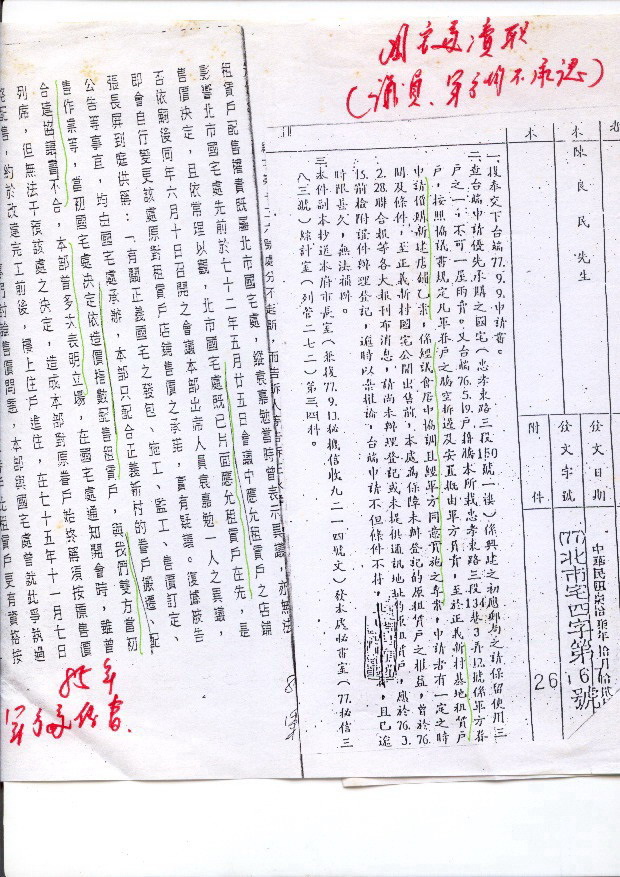 瀆職
(議員、軍方均不承認)
陳良民先生
發文日期
發文字號
附件
中華民國
77北市宅四字第 16 號
26
一、復奉交下台端77.9.9.申請書。
二、查台端申請優先承購之國宅(忠孝東路三段150號一樓)係興建之初應郵局之請保留使用三
戶之一,不可一屋兩賣。又台端76.5.19.戶籍謄本所載忠孝東路三段13巷3弄12號係軍方眷
戶,按照協議書規定凡軍眷戶之騰空拆遷及安置概由軍方負責,至於正義新村基地租賃戶
申請價購新建店鋪乙案,係經議會居中協調且經軍方同意實施之專案,申請者有一定之時
間及條件,至正義新村國宅公開出售前,本處為保障未辦登記的原租賃戶之權益,曾於76.
2.28.聯合報等各大報刊布消息,請尚未辦理登記或未提供通訊地址的原租賃戶,應於76.3.
15.前檢附證件辦理登記,逾時以棄權論,台端申請不但條件不符,且已逾
時限甚久,無法補辦。
三、本件副本抄送本府市長室(兼復77.9.13.秘機信收九二一四號文)發本處秘書室(77.秘信三
八三號)統計室(列管二七二)第三四科。
租賃戶配售權責既屬北市國宅處,縱袁嘉勉當時曾表示異議,亦無法
影響北市國宅處先前於七十二年五月廿五日會議中應允租賃戶之店鋪
售價決定,且依常理以觀,北市國宅處既已片面應允租賃戶在先,是
否依嗣後同年六月十日召開之會議本部出席人員袁嘉勉一人之異議,
即會自行變更該處原對租賃戶店鋪售價之承諾,實有疑議。復據被告
張長屏到庭供稱:「有關正義國宅之發包、施工、監工、售價訂定、
公告等事宜,均由國宅處承辦,本部只配合正義新村的眷戶搬遷、配
售作業等,當初國宅處決定依造價指數配售租賃戶,與我們雙方當初
合建協議書不合,本部曾多次表明立場,在國宅處通知開會時,雖曾
列席,但無法干預該處之決定,造成本部對原眷戶始終無須按標售價
配售,均於改建完工前後,樓上住戶進住,在七十五年十一月七日
討論售價問題,本部與國宅處曾就此爭執過
85年